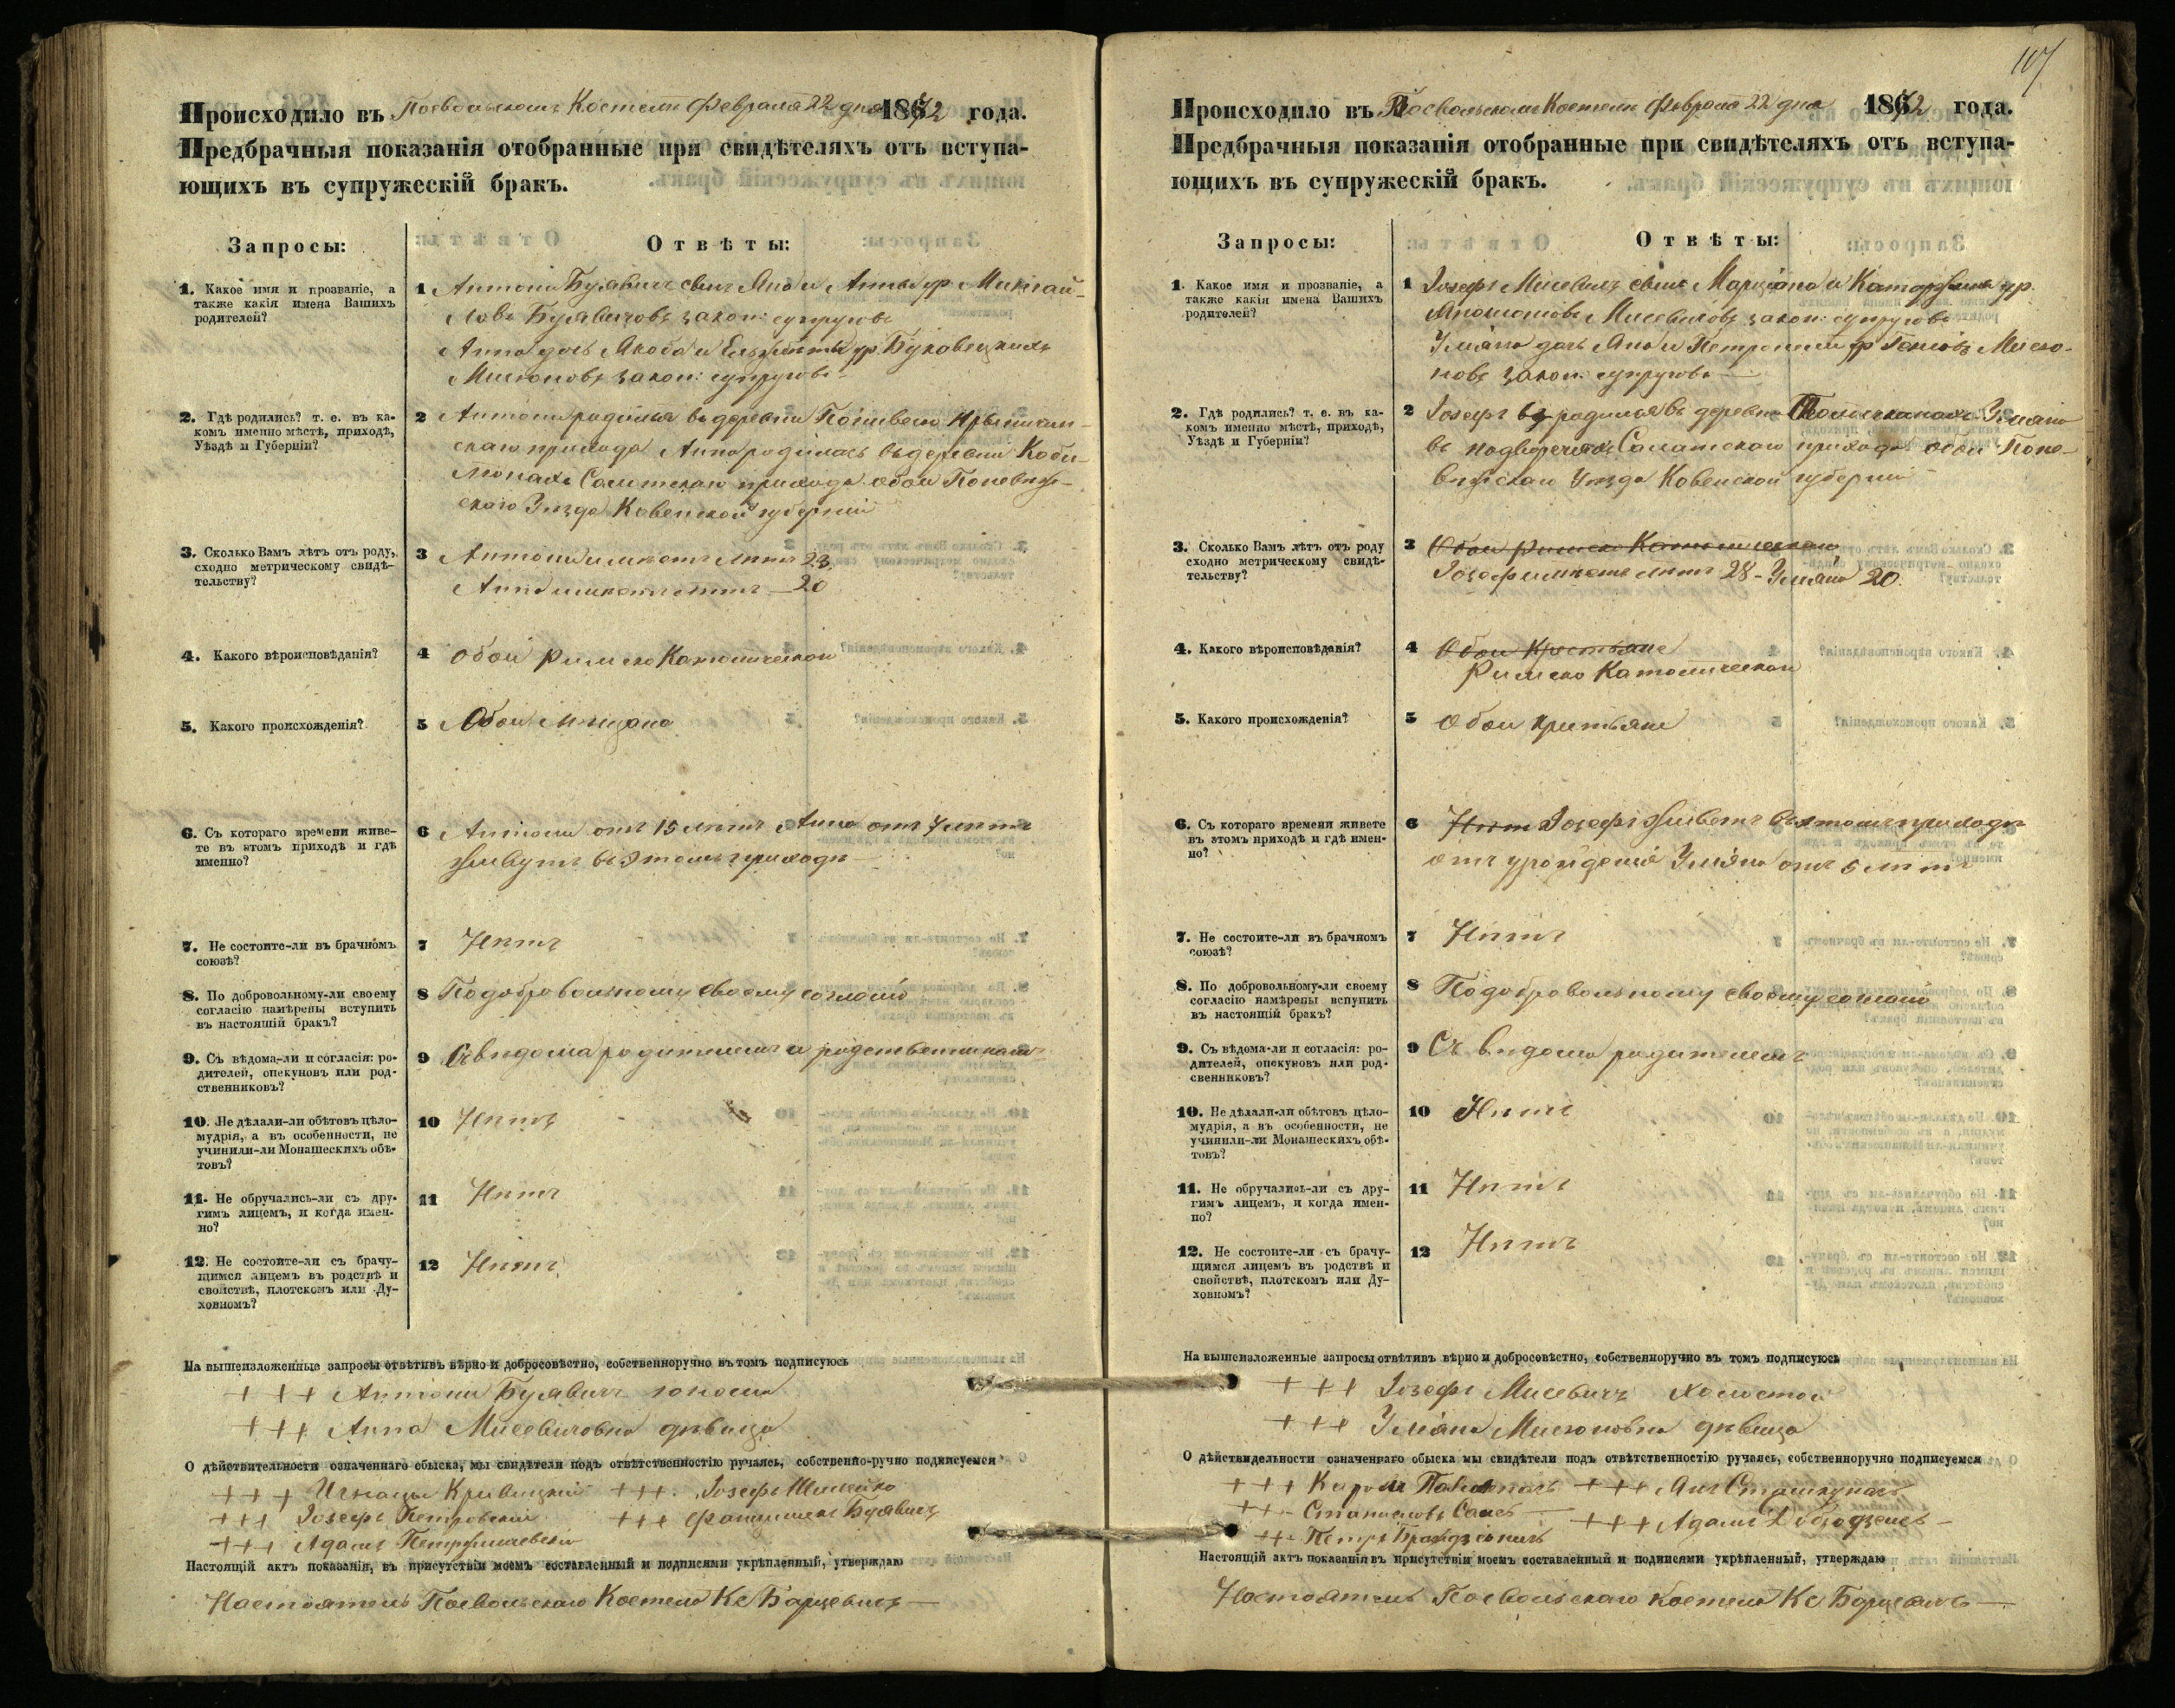 Происходило въ Посвольскомъ Костелѣ Февраля 22 дня 1872 года.
Предбрачныя показанія отобранные при свидѣтеляхъ отъ вступа-
ющихъ въ супружескій бракъ.
Запросы: Отвѣты:
1. Какое имя и прозваніе, а
также какія имена Вашихъ
родителей?
1 Антони Буявичъ сынъ Яна и Анны ур. Михай-
ловъ Буявичовъ закон: супруговъ
Анна дочь Якоба и Ельжбеты ур.
закон: супруговъ
2. Гдѣ родились? т. е. въ ка-
комъ именно мѣстѣ, приходѣ,
Уѣздѣ и Губерніи?
2 Антони родился въ деревни
скаго прихода Анна родилась въ деревни
прихода обои Поневѣж-
скаго Уѣзда Ковенской губерніи
3. Сколько Вамъ лѣтъ отъ роду,
сходно метрическому свидѣ-
тельству?
3 Антони имѣетъ лѣтъ 23.
Анна имѣетъ лѣтъ — 20
4. Какого вѣроисповѣданія?
4 Обои Римско Католической
5. Какого происхожденія?
5 Обои мѣщана
6. Съ котораго времени живе-
те въ этомъ приходѣ и гдѣ
именно?
6 Антони отъ 15 лѣтъ Анна отъ 7 лѣтъ
живутъ въ этомъ приходѣ —
7. Не состоите-ли въ брачномъ
союзѣ?
7 Нѣтъ
8. По добровольному-ли своему
согласію намѣрены вступить
въ настоящій бракъ?
8 По добровольному своему согласію
9. Съ вѣдома-ли и согласія: ро-
дителей, опекуновъ или род-
ственниковъ?
9 Съ вѣдома родителей и родственниковъ
10. Не дѣлали-ли обѣтовъ цѣло-
мудрія, а въ особенности, не
учинили-ли Монашескихъ обѣ-
товъ?
10 Нѣтъ
11. Не обручались-ли съ дру-
гимъ лицемъ, и когда имен-
но?
11 Нѣтъ
12. Не состоите-ли съ брачу-
щимся лицемъ въ родствѣ и
свойствѣ, плотскомъ или Ду-
ховномъ?
12 Нѣтъ
На вышеизложенные запросы отвѣтивъ вѣрно и добросовѣстно, собственноручно въ томъ подписуюсь
+++ Антони Буявичъ юноша
+++ Анна Мисевичовна дѣвица
О дѣйствительности означеннаго обыска, мы свидѣтели подъ отвѣтственностію ручаясь, собственно-ручно подписуемся
+++ Игнацы Кривицкій +++ Іозефъ
+++ Іозефъ Петровскій +++ Буявичъ
+++ Адамъ
Настоящій актъ показанія, въ присутствіи моемъ составленный и подписями укрѣпленный, утверждаю
Настоятель Посвольскаго Костела Кс Барцевичъ —
107
Происходило въ Посвольскомъ Костелѣ Февраля 22 дня 1872 года.
Предбрачныя показанія отобранные при свидѣтеляхъ отъ вступа-
ющихъ въ супружескій бракъ.
Запросы: Отвѣты:
1. Какое имя и прозваніе, а
также какія имена Вашихъ
родителей?
1 Іозефъ Мисевичъ сынъ Марціана и Катаржины ур.
Мисевичовъ закон: супруговъ
Уліана дочь Яна и Петронели ур
новъ закон: супруговъ —
2. Гдѣ родились? т. е. въ ка-
комъ именно мѣстѣ, приходѣ,
Уѣздѣ и Губерніи?
2 Іозефъ родился въ деревнѣ Уліана
въ прихода обои Поне-
вѣжскаго Уѣзда Ковенской губерніи
3. Сколько Вамъ лѣтъ отъ роду
сходно метрическому свидѣ-
тельству?
3 Обои Римско Католической
Іозефъ имѣетъ лѣтъ 28 - Уліана 20.
4. Какого вѣроисповѣданія?
4 Обои Крестьяне
Римско Католической
5. Какого происхожденія?
5 Обои Кретьяне
6. Съ котораго времени живете
въ этомъ приходѣ и гдѣ имен-
но?
6 Нѣтъ Іозефъ живетъ въ этомъ приходѣ
отъ урожденія Уліана отъ 5 лѣтъ
7. Не состоите-ли въ брачномъ
союзѣ?
7 Нѣтъ
8. По добровольному-ли своему
согласію намѣрены вспупить
въ настоящій бракъ?
8 По добровольному своему согласію
9. Съ вѣдома-ли и согласія: ро-
дителей, опекуновъ или род-
свенниковъ?
9 Съ вѣдома родителей
10. Не дѣлали-ли обѣтовъ цѣло-
мудрія, а въ особенности, не
учинили-ли Монашескихъ обѣ-
товъ?
10 Нѣтъ
11. Не обручались-ли съ дру-
гимъ лицемъ, и когда имен-
но?
11 Нѣтъ
12. Не состоите-ли съ брачу-
щимся лицемъ въ родствѣ и
свойствѣ, плотскомъ или Ду-
ховномъ?
12 Нѣтъ
На вышеизложенные запросы отвѣтивъ вѣрно и добросовѣстно, собственноручно въ томъ подписуюсь
+++ Іозефъ Мисевичъ холостой
+++ Уліана Мисюновна дѣвица
О дѣйствидельности означеннаго обыска мы свидѣтели подъ отвѣтственностію ручаясь, собственноручно подписуемся
+++ Кароль +++ Янъ Сташкунасъ
+++ Станиславъ +++ Адамъ
+++ Петръ
Настоящій актъ показанія въ присутствіи моемъ составленный и подписями укрѣпленный, утверждаю
Настоятель Посвольскаго Костела Кс Барцевичъ —